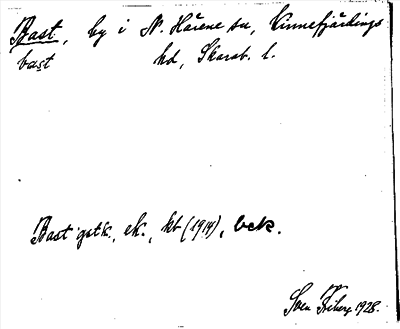 Bast, by i N. Härene sn, Kinnefjärdings
bast hd, Skarab. l.
Bast gstk., ek., kb (1914), bck.
Sven Friberg 1928.